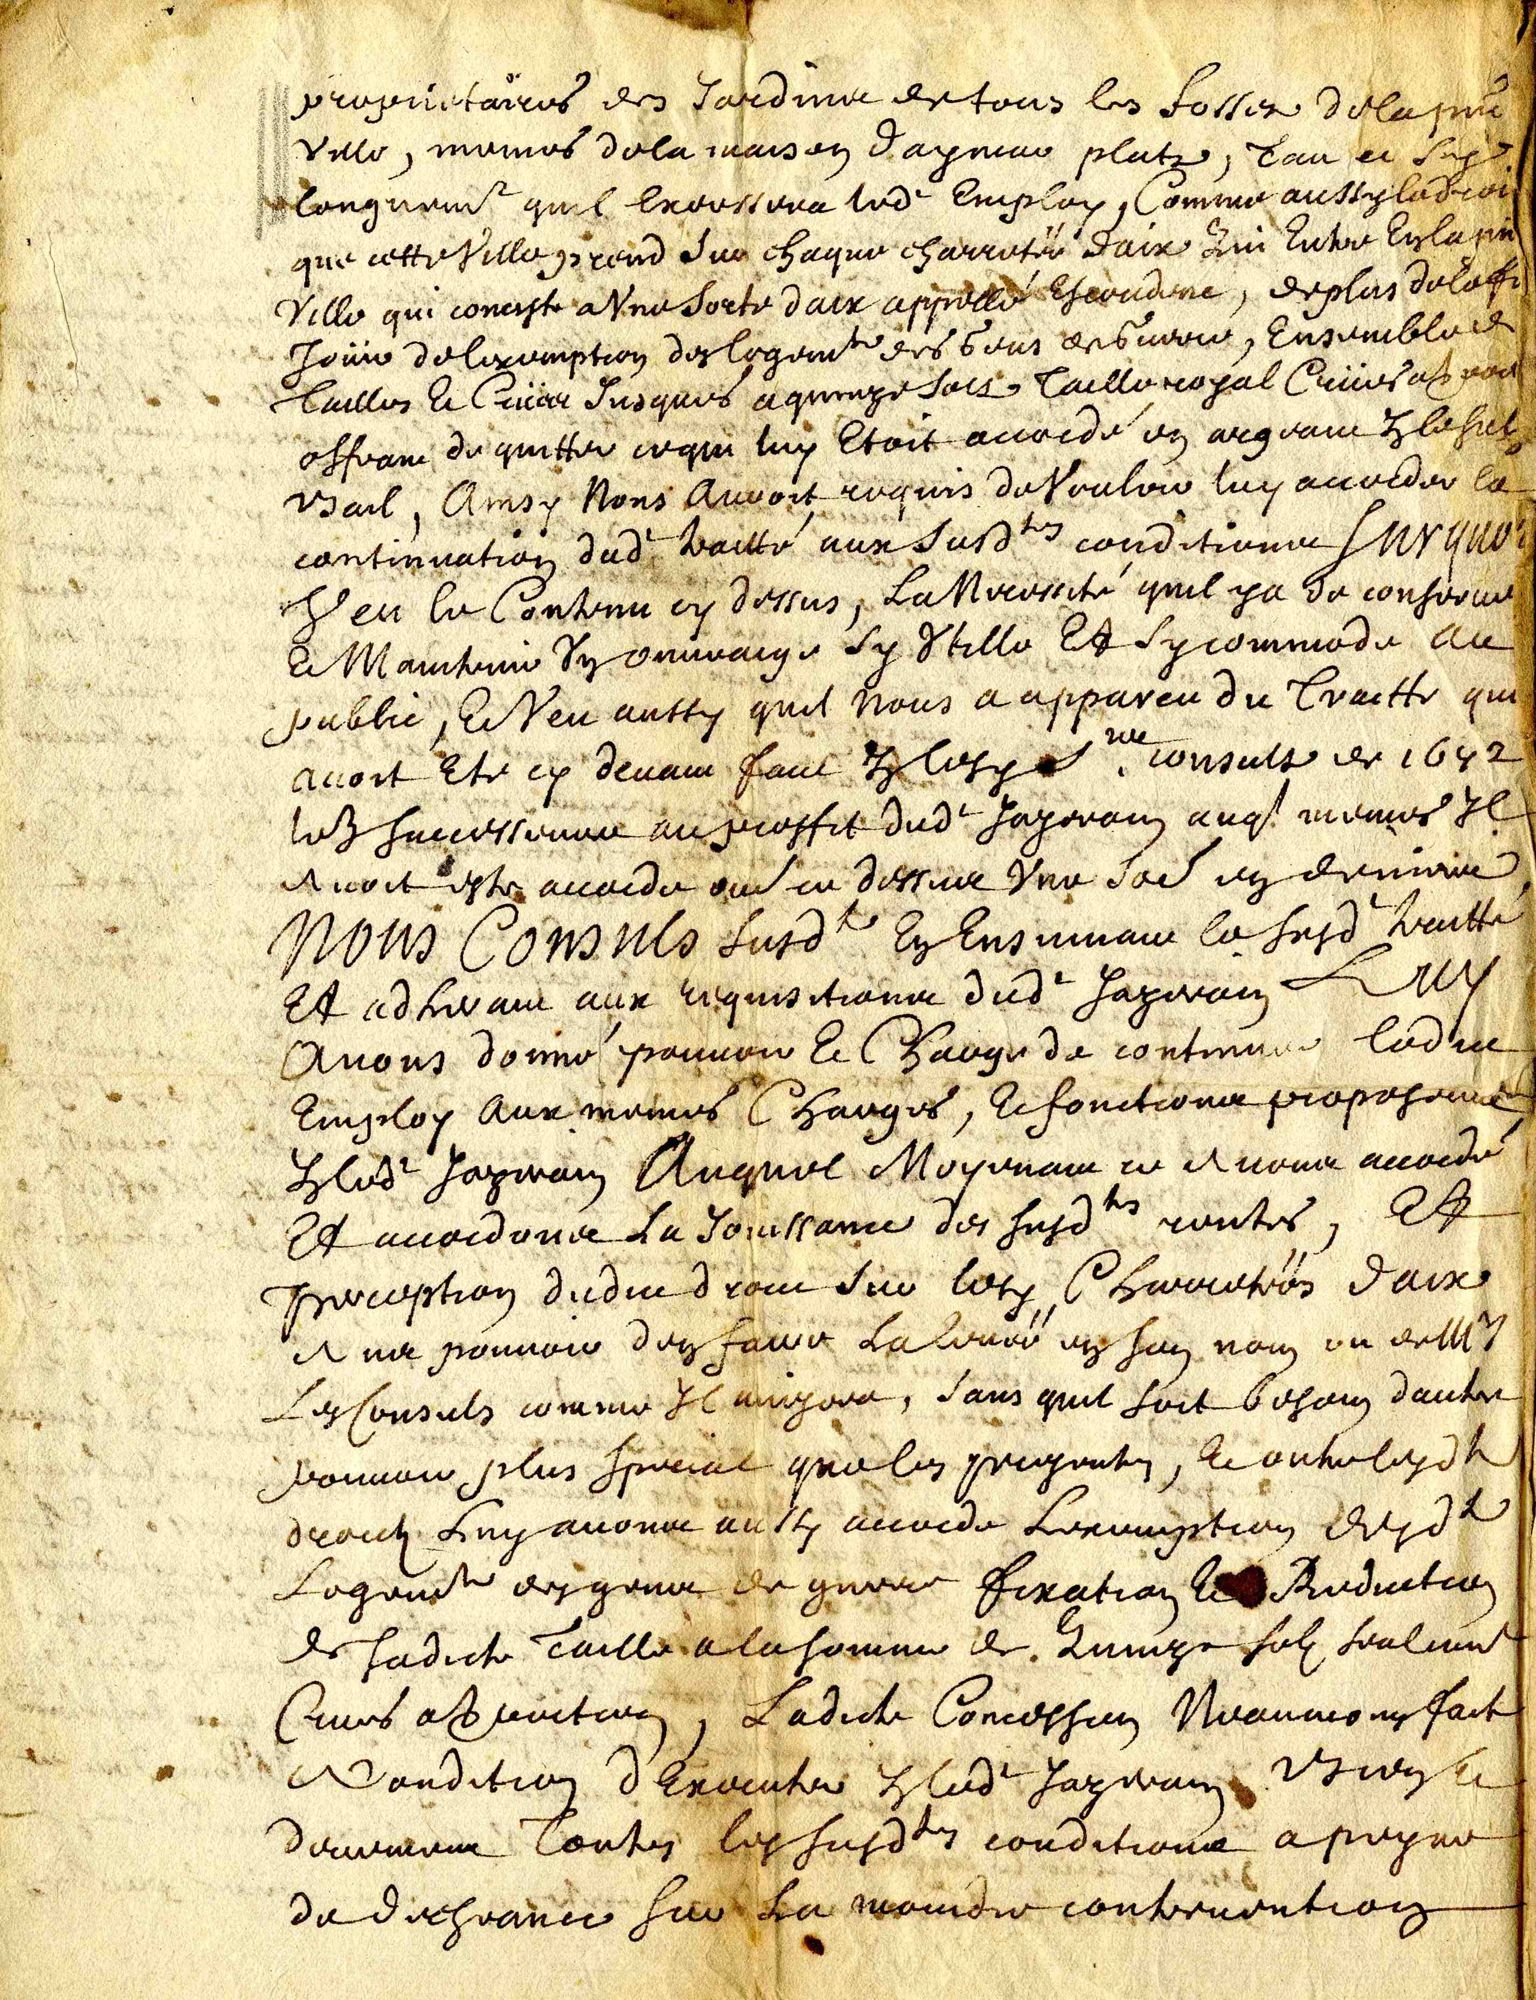 proprietaires des Jardins de tous les fosses dela pnt
Ville, memes dela maison d plats, tan et sy
longuemt quil exerssera ledt Employ, Comme aussy le droit
que cette Ville prend sur chaque charretée daix qui Entre En la pnt
Ville qui conciste a Vne sorte daix appellé, de plus de
Joüir de lexemption des logemts des Gens de Guerre, Ensemble de
tailles et Crües Jusques a quinze sols taille royal Crües
offrant de quitter ce qui luy Etoit accordé en argeant
bail, Ainsy Nous auroit requis de Vouloir luy accorder la
continuation dudt traitté aux susdtes conditions Surquoy
Veu le Contenu cy dessus, La Necessité quil ya de conserver
et Maintenir Vn ouvraige sy Vtille Et sy commode au
public, et Veu aussy quil Nous a appareu du Traitte qui
auoit Ete cy deuant fait consuls de 1692
successeurs au proffit dudt Jayerain auql memes Jl
auoit este accorde
Nous Consuls susdts En Ensuiuant le susdt traitté
Et adherant aux requisitions dudt Jayerain Luy
Auons donné pouuoir et Charge de continuer ledit
Employ Aux memes Charges, et fonctions proposées
ledt Jayerain Auquel Moyenant ce Auons accordé
Et accordons La Jouissance des susdtes rentes, Et
perception dudit droit sur les Charretées daix
Auec pouuoir den faire La leuée en son nom ou de Mrs
Les Consuls comme Jl auisera, sans quil soit besoin dautre
pouuoir plus special que les presentes, et outre lesdts
droits Luy auons aussy accorde Lexemption desdts
Logemts des gens de guerre fixation et Reduction
de sadite Taille a la somme de quinze sols seulemt
Crües, Ladite Concession Neanmoins faite
A Condition dExecuter ledt Jayerain Bien et
deuement Toutes les susdtes conditions a peyne
de decheance sur La moindre contreuention